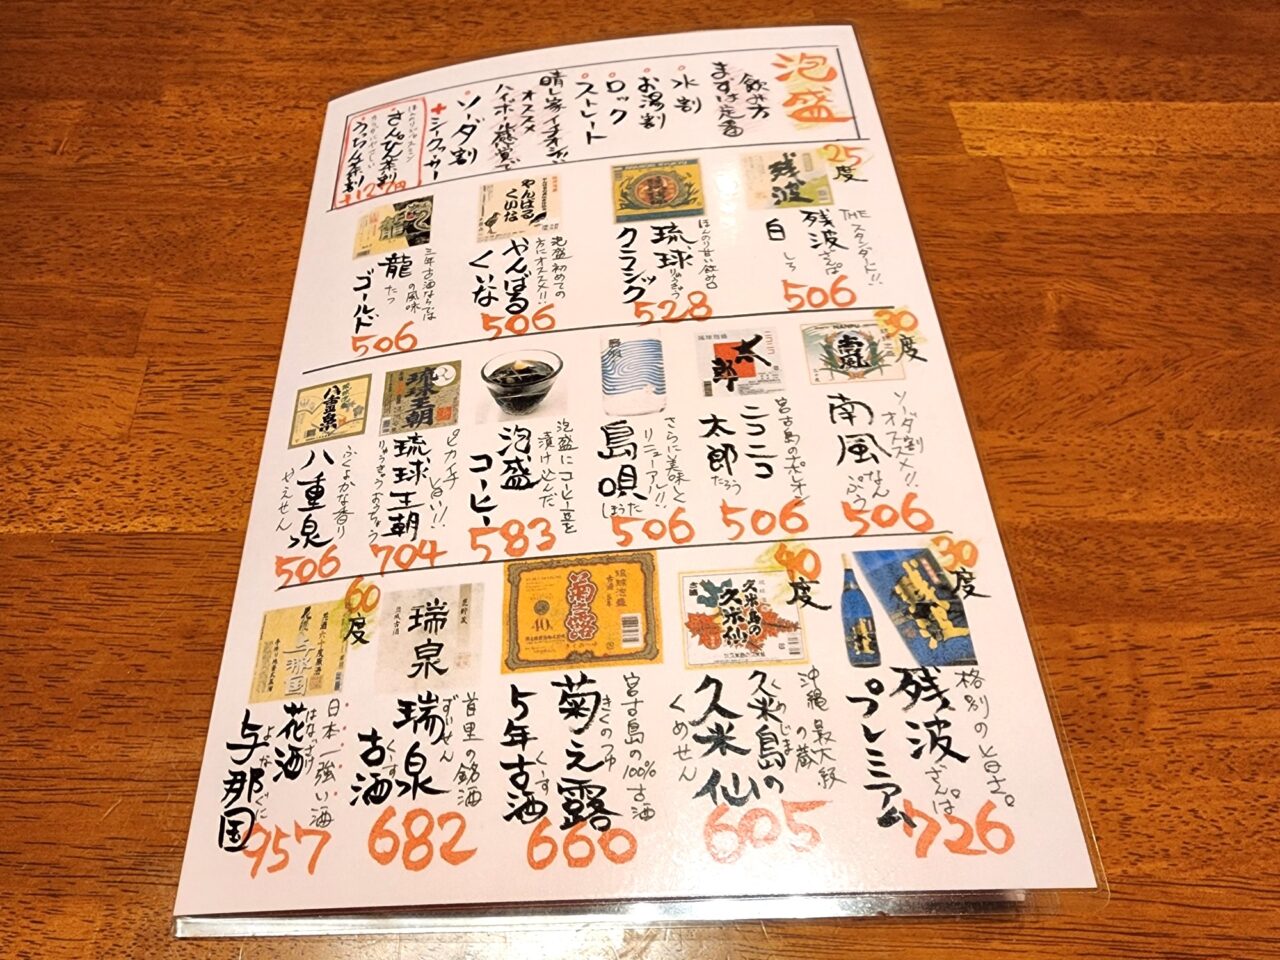 泡盛
飲み方
まずは定番
水割
お湯割
ロック
ストレート
晴し家イチオシ!!
オススメ
ハイボール感覚で
ソーダ割
+シークヮーサー
ほんのりジャスミン
さんぴん茶割
カラダにやさしい
うっちん茶割
+127円
25度
残波
THEスタンダード!!
残波ざんぱ
白しろ
506
ほんのり甘い飲み口
琉球りゅうきゅう
クラシック
528
やんばるくいな
泡盛初めての
方にオススメ!!
やんばる
くいな
506
龍
三年古酒ならでは
の風味
龍たつ
ゴールド
506
30度
南風
ソーダ割
オススメ!!
南風なんぷう
506
太郎
宮古島のポレオン
ニコニコ
太郎だろう
506
島唄
さらに美味しく
リニューアル!!
島唄しまうた
506
泡盛にコーヒー豆を
漬け込んだ
泡盛
コーヒー
583
琉球王朝
ピカイチ
旨い!!
琉球王朝
りゅうきゅうおうちょう
704
八重泉
ふくよかな香り
八重泉
やえせん
506
30度
格別の旨さ。
残波ざんぱ
プレミアム
726
40度
久米島の
久米仙
沖縄最大級
の蔵
久米島のくめじま
久米仙
くめせん
605
琉球泡盛
古酒
菊之露
40
宮古島の100%古酒
菊之露
きくのつゆ
5年古酒くーす
660
瑞泉
首里の銘酒
瑞泉ずいせん
古酒くーす
682
60度
与那国
日本一強い酒
花酒はなざけ
与那国よなぐに
957